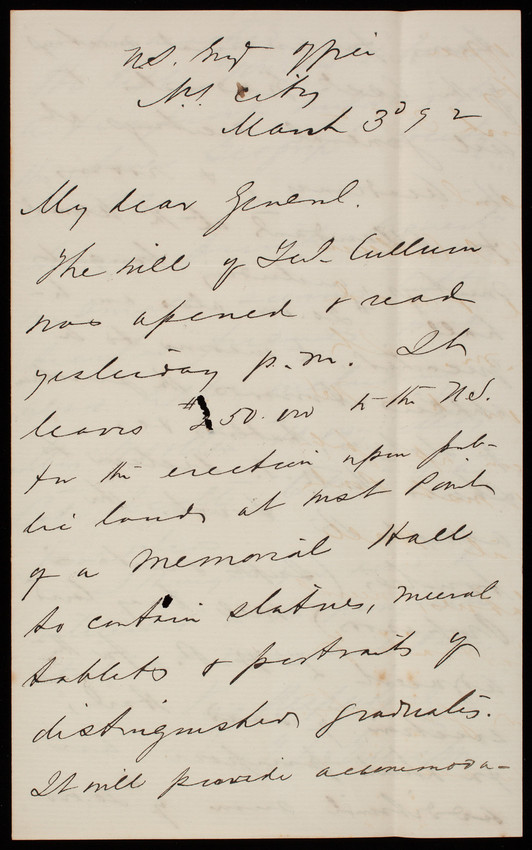 U.S. Eng'r Office
N.Y. City
March 3d 92
My dear General.
The will of Gen'l Cullum
was opened & read
yesterday p.m. It
leaves $250.000 to the U.S.
for the erection upon pub-
lic lands at West Point
of a Memorial Hall
to contain statues, mural
tablets & portraits of
distinguished graduates.
It will provide accommoda-